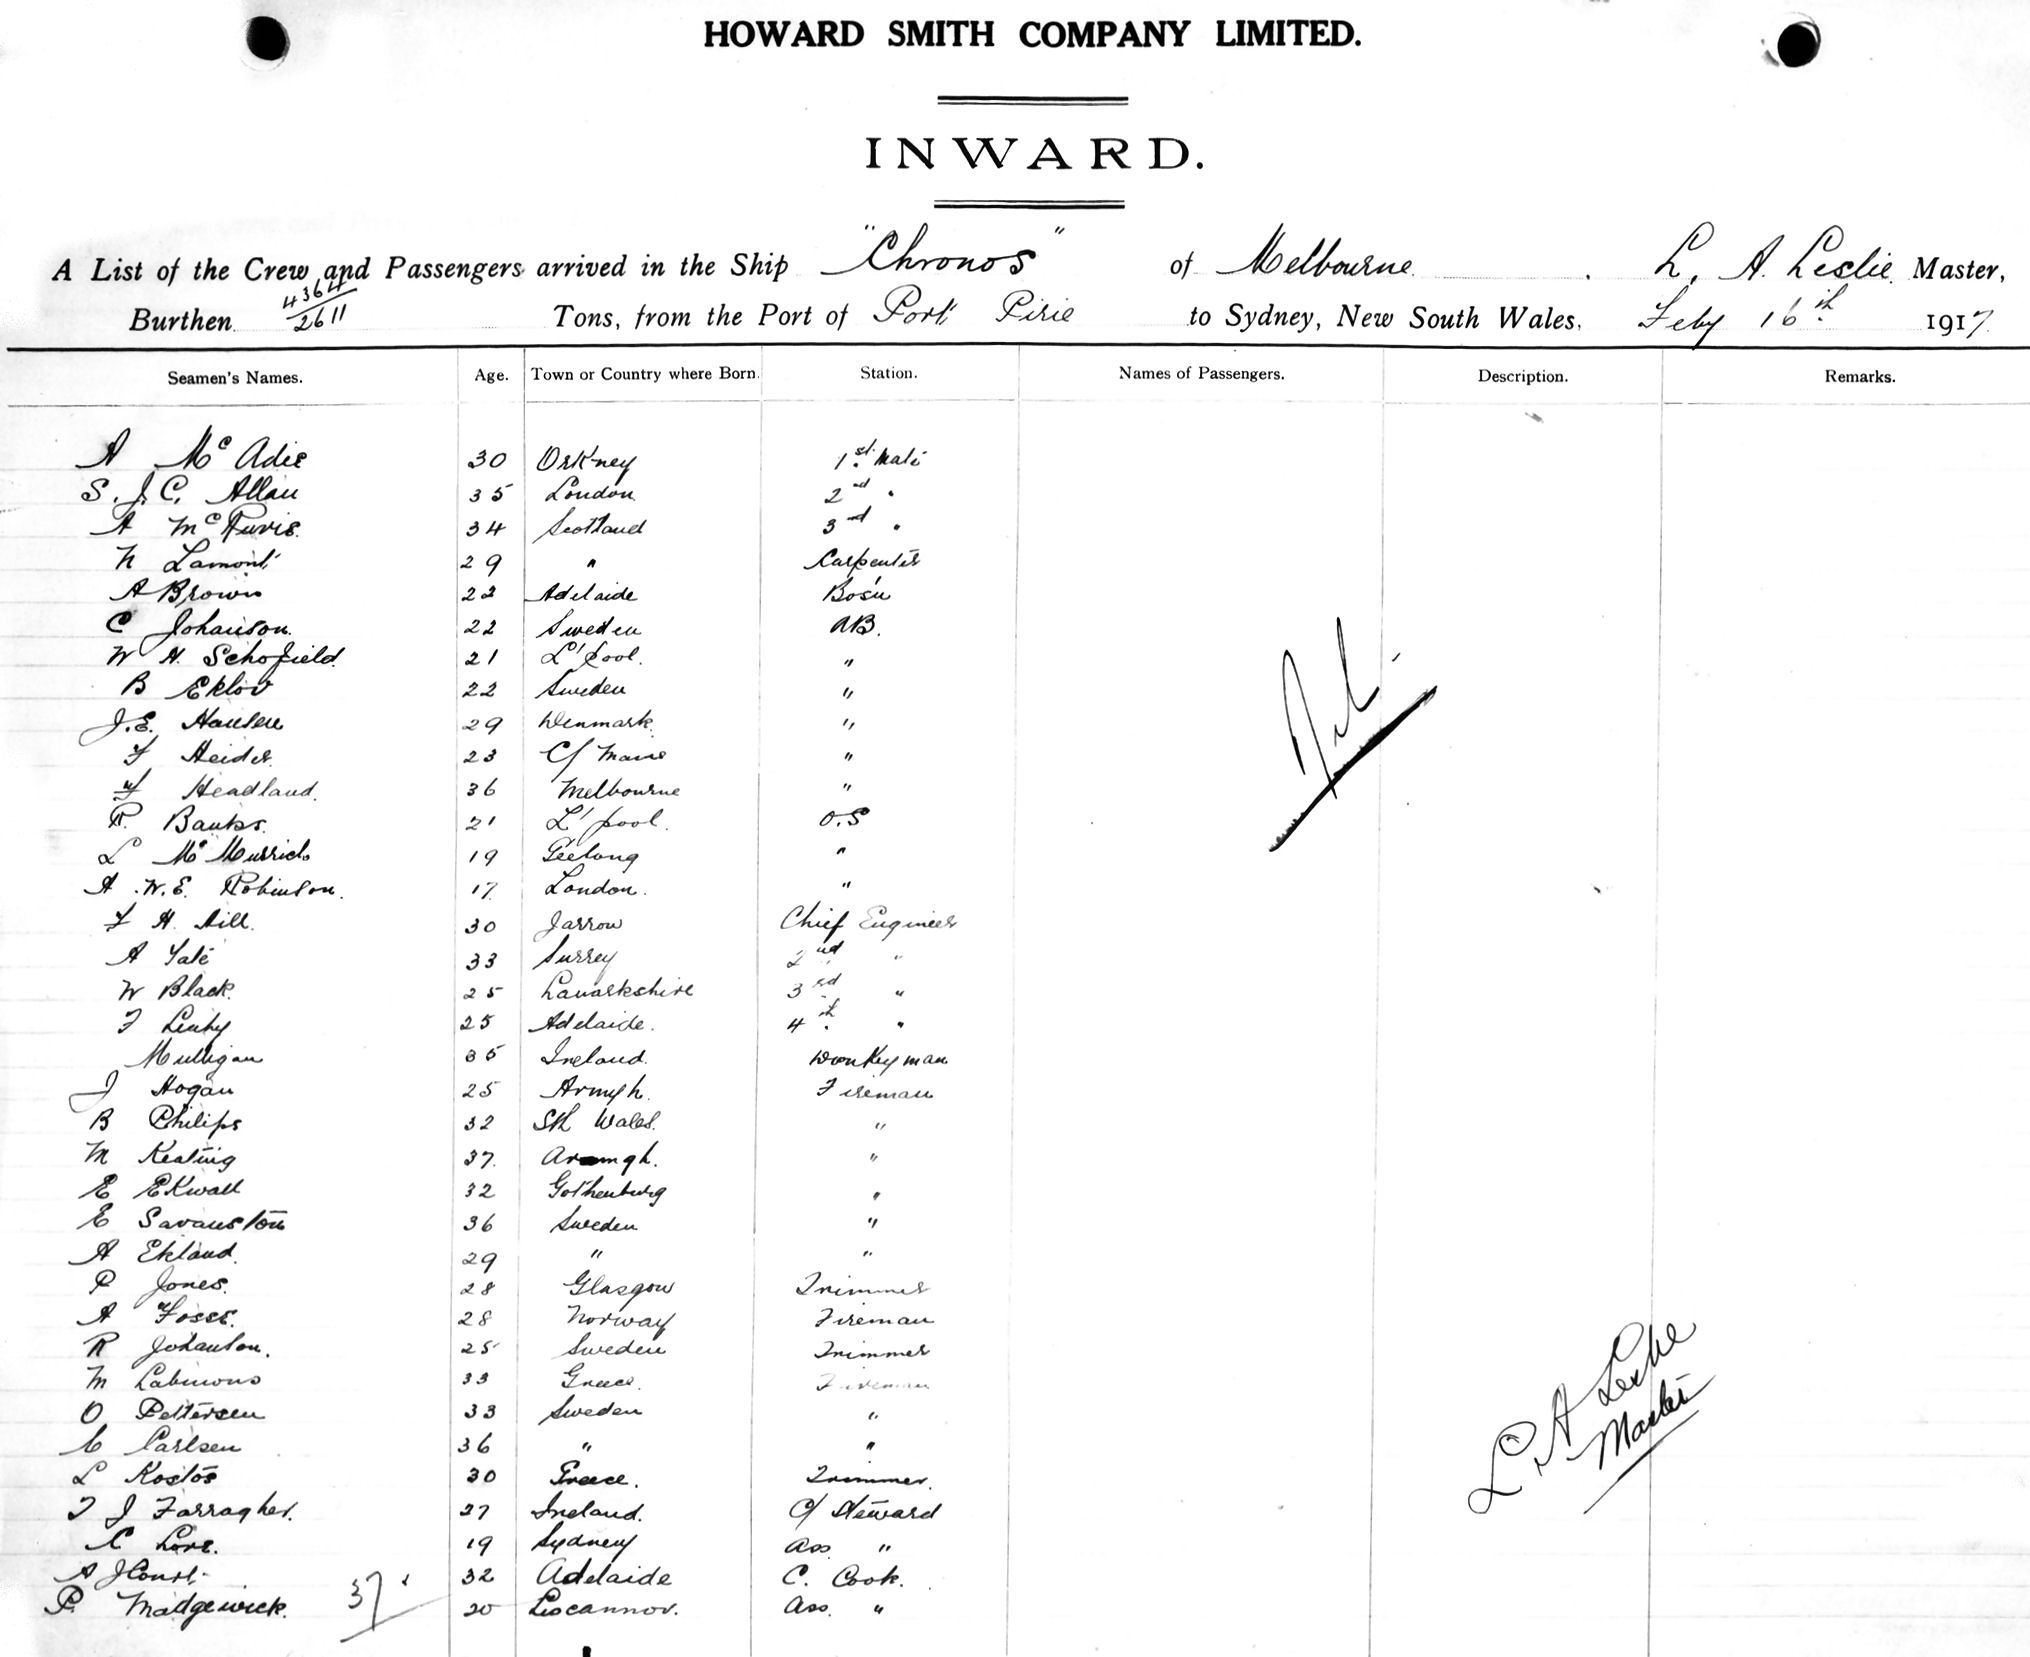 HOWARD SMITH COMPANY LIMITED.
INWARD.
A List of the Crew and Passengers arrived in the Ship "Chronos" of Melbourne. L. A. Leslie Master,
Burthen 4364/2611 Tons, from the Port of Port Pirie to Sydney, New South Wales, Feby 16th 1917
Seamen's Names. Age. Town or Country where Born. Station. Names of Passengers. Description. Remarks.
A Mc Adie 30 Orkney 1st. Mate
S. J. C. Allan 35 London 2nd "
A Mc 34 Scotland 3rd "
N Lamont 29 " Carpenter
A Brown 22 Adelaide Bosn
C Johanson. 22 Sweden AB.
W H. Schofield. 21 L'pool. "
B Eklov 22 Sweden "
J. E. Hansen 29 Denmark "
F Heider. 23 "
F Headland. 36 Melbourne "
R. Banks. 21 L'pool. O.S
L Mc Murrich 19 Geelong "
A. W. E. Robinson. 17. London. "
F H. Hill. 30 Jarrow Chief Engineer
A Yate 33 Surrey 2nd "
W Black. 25 Lanarkshire 3rd "
F 25 Adelaide. 4th. "
Mulligan 35 Ireland. Donkeyman
J Hogan 25 Armgh. Fireman
B Philips 32 Sth Wales. "
M Keating 37. Armgh. "
E Ekwall 32 Gothenburg "
E 36 Sweden "
A Ekland. 29 " "
P Jones. 28 Glasgow Trimmer
A Fosse. 28 Norway Fireman
R Johanson. 25 Sweden Trimmer
M 33 Greece. Fireman
O Pettersen 33 Sweden "
C Carlsen 36 " "
L Kostos 30 Greece. Trimmer.
T J Farragher. 27 Ireland. C/ Steward
C Love. 19 Sydney Ass. "
A J Court. 32 Adelaide C. Cook.
P. Madgewick. 37 20 Liscannor. Ass. "
Nil.
L. A Leslie
Master